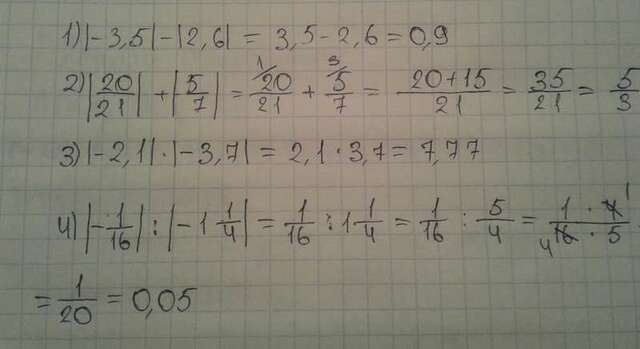 1) |-3,5| - |2,6| = 3,5 - 2,6 = 0,9
2) |20/21| + |5/7| = ¹⁄20/21 + ³⁄5/7 = (20+15)/21 = 35/21 = 5/3
3) |-2,1| · |-3,7| = 2,1 · 3,7 = 7,77
4) |-1/16| : |-1 1/4| = 1/16 : 1 1/4 = 1/16 : 5/4 = (1 · 4̶ ¹)/(₄ 1̶6̶ · 5)
= 1/20 = 0,05